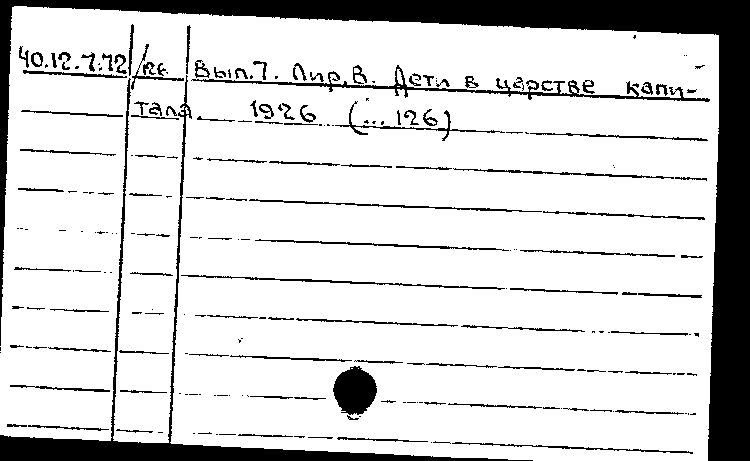 40.12.7.72 /126 Вып.7. Лир, В. Дети в царстве капи-
тала. 1926 (... 126)